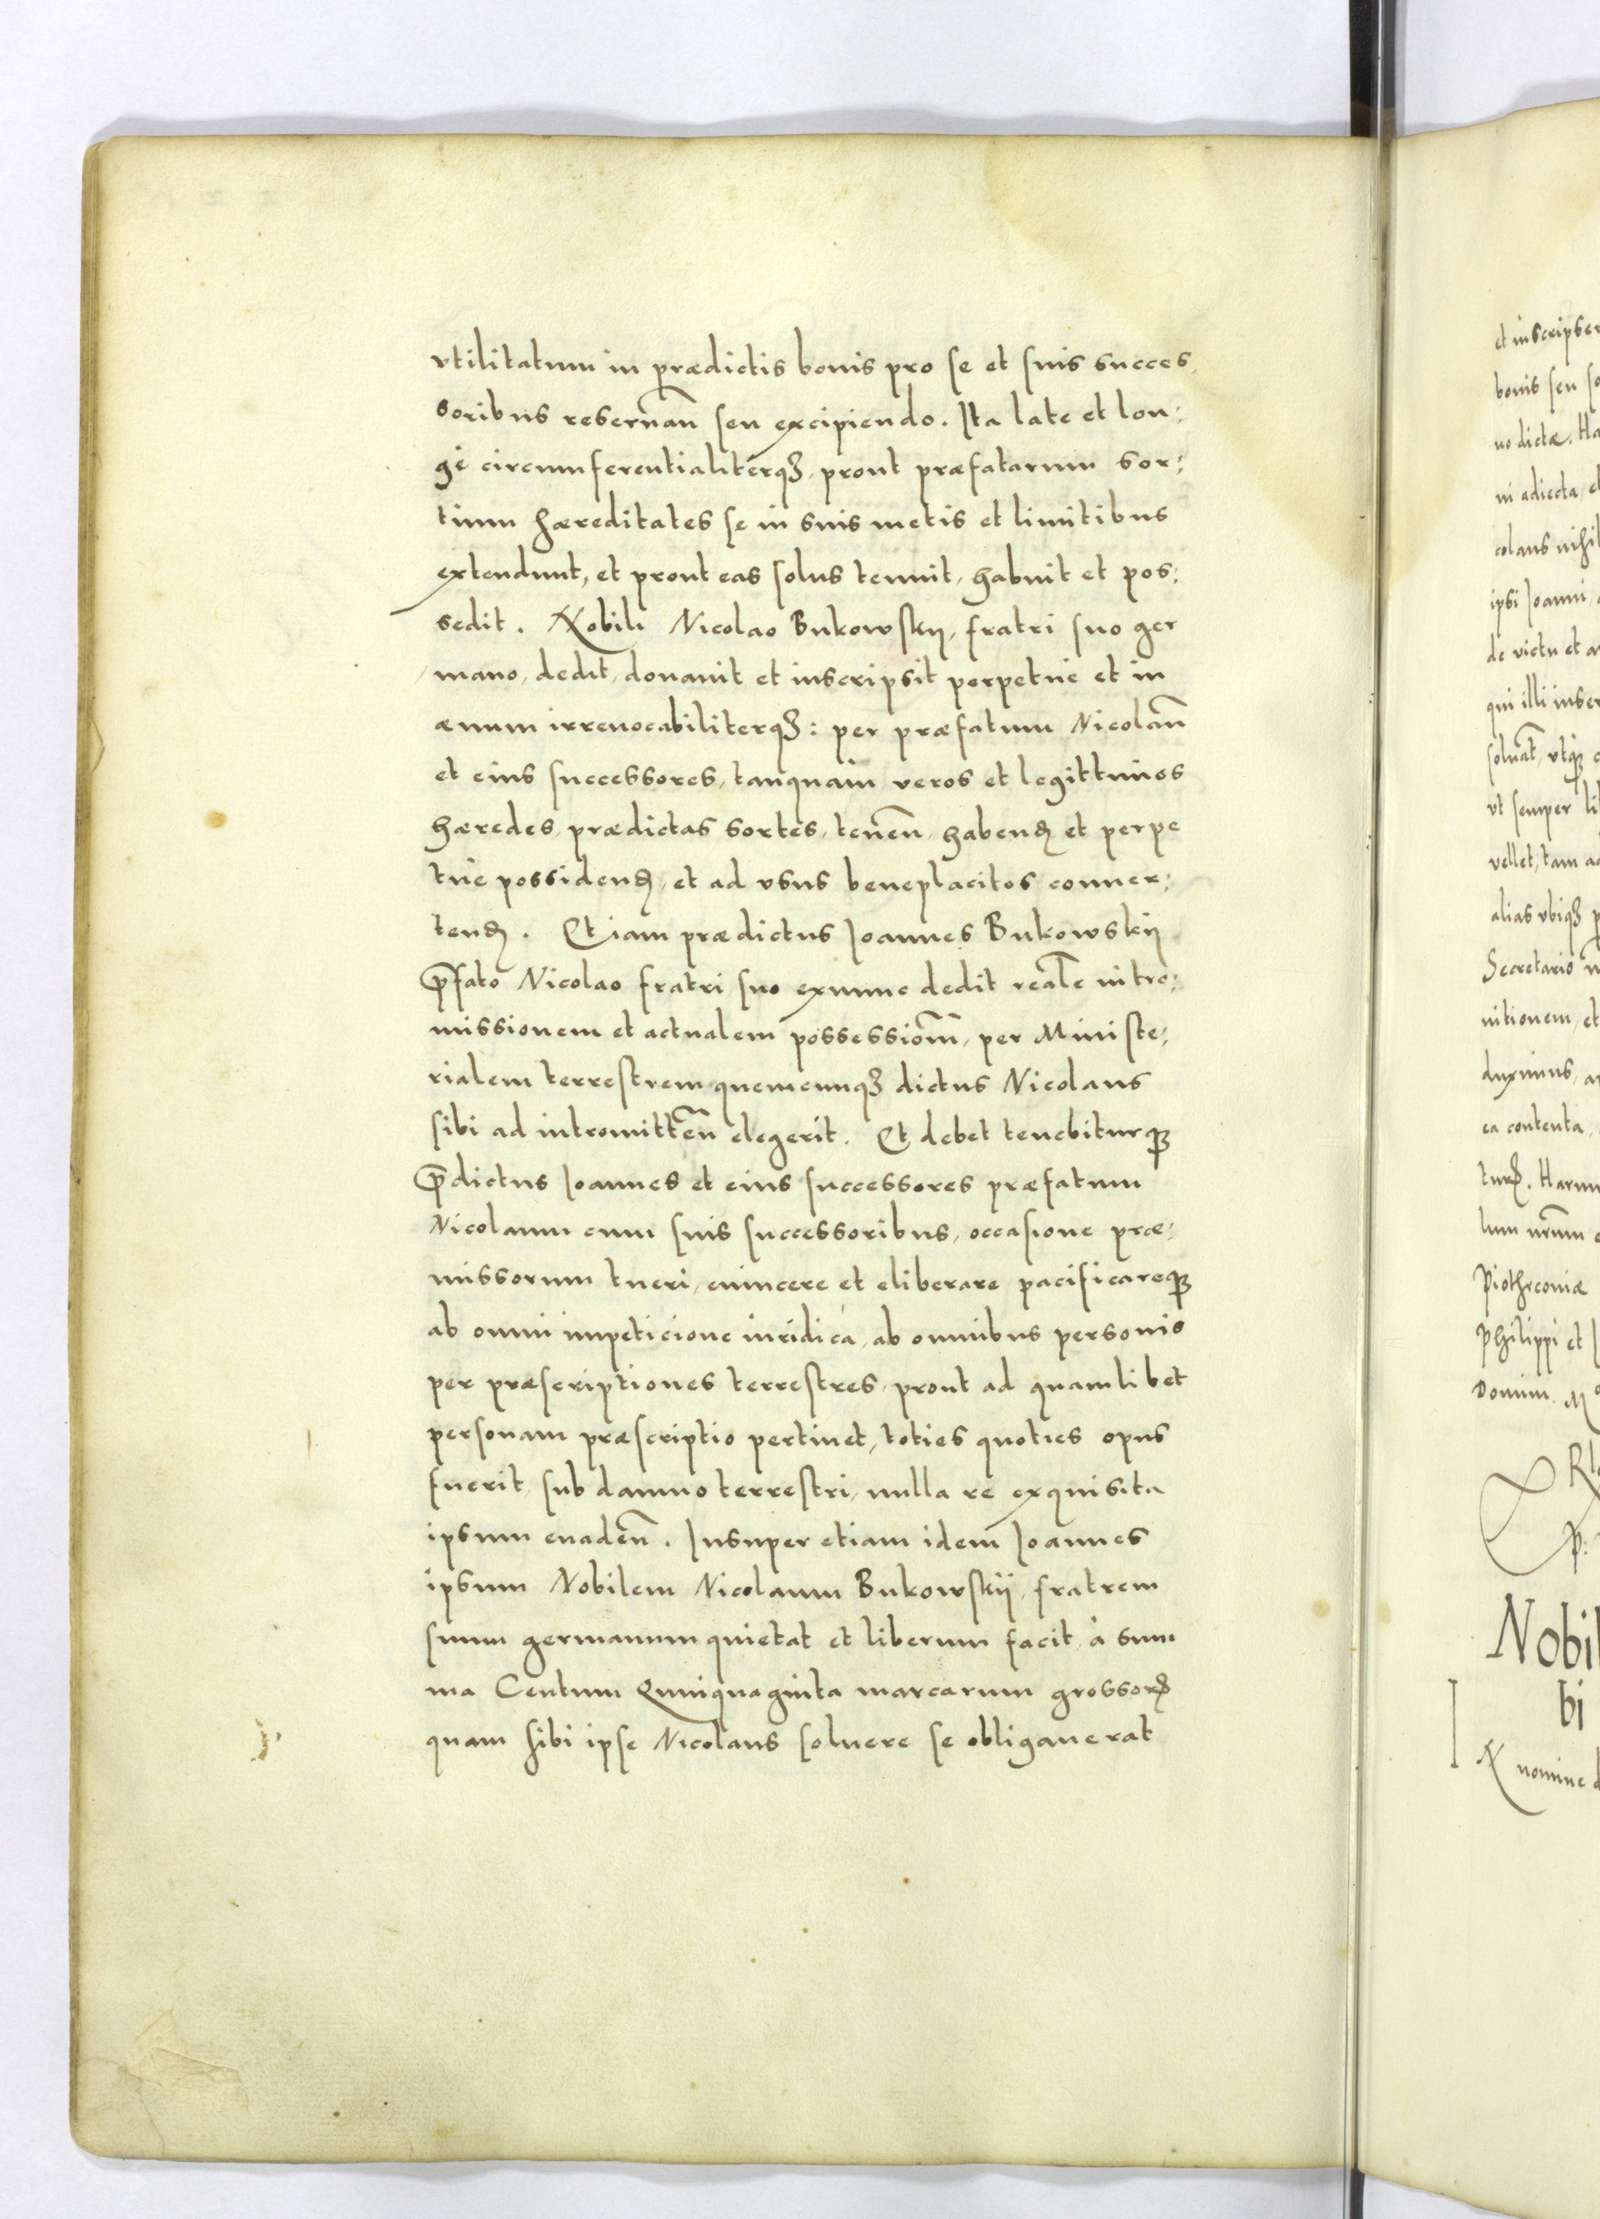 vtilitatum in prædictis bonis pro se et suis succes
soribus reseruañ seu excipiendo. Ita late et lon:
ge circumferentialiterqȝ, prout præfatarum sor:
tium hæreditates se in suis metis et limitibus
extendunt, et prout eas solus tenuit, habuit et pos:
sedit. Nobili Nicolao Bukowskij, fratri suo ger
mano, dedit, donauit et inscripsit perpetue et in
æuum irreuocabiliterqȝ: per præfatum Nicolaū
et eius successores, tanquam veros et legittimos
hæredes, prædictas sortes, teneñ, habenđ et perpe
tue possidenđ, et ad vsus beneplacitos conuer:
tenđ. Etiam prædictus Joannes Bukowskij
p̄fato Nicolao fratri suo exnunc dedit realē intro:
missionem et actualem possessiōm, per Ministe:
rialem terrestrem quemcunqȝ dictus Nicolaus
sibi ad intromitteñ elegerit. Et debet tenebiturqȝ
p̄dictus Joannes et eius successores præfatum
Nicolaum cum suis successoribus, occasione præ:
missorum tueri, euincere et eliberare pacificareqȝ
ab omni impeticione iuridica, ab omnibus personis
per præscriptiones terrestres, prout ad quamlibet
personam præscriptio pertinet, toties quoties opus
fuerit, sub damno terrestri, nulla re exquisita
ipsum euadeñ. Insuper etiam idem Joannes
ipsum Nobilem Nicolaum Bukowskij, fratrem
suum germanum quietat et liberum facit, à sum
ma Centum Quinquaginta marcarum grossorꝝ
quam sibi ipse Nicolaus soluere se obligauerat
et inscripser
bonis seu so
uo dictæ. Ha
ni adiecta, et
colaus nihil
ipsi Joanni,
de victu et a
qui illi inser
soluat, vtqȝ
vt semper li
vellet, tam a
alias vbiqȝ p
Secretario
nitionem, et
duximus, a
ea contenta,
turꝝ. Harum
lum nr̄um
Piothrcouiæ
Philippi et
Domini. M
Nobil
bi
N nomine d